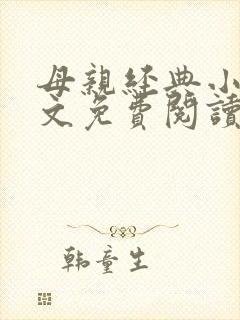 母親經典小
文免費閱讀
韩童生